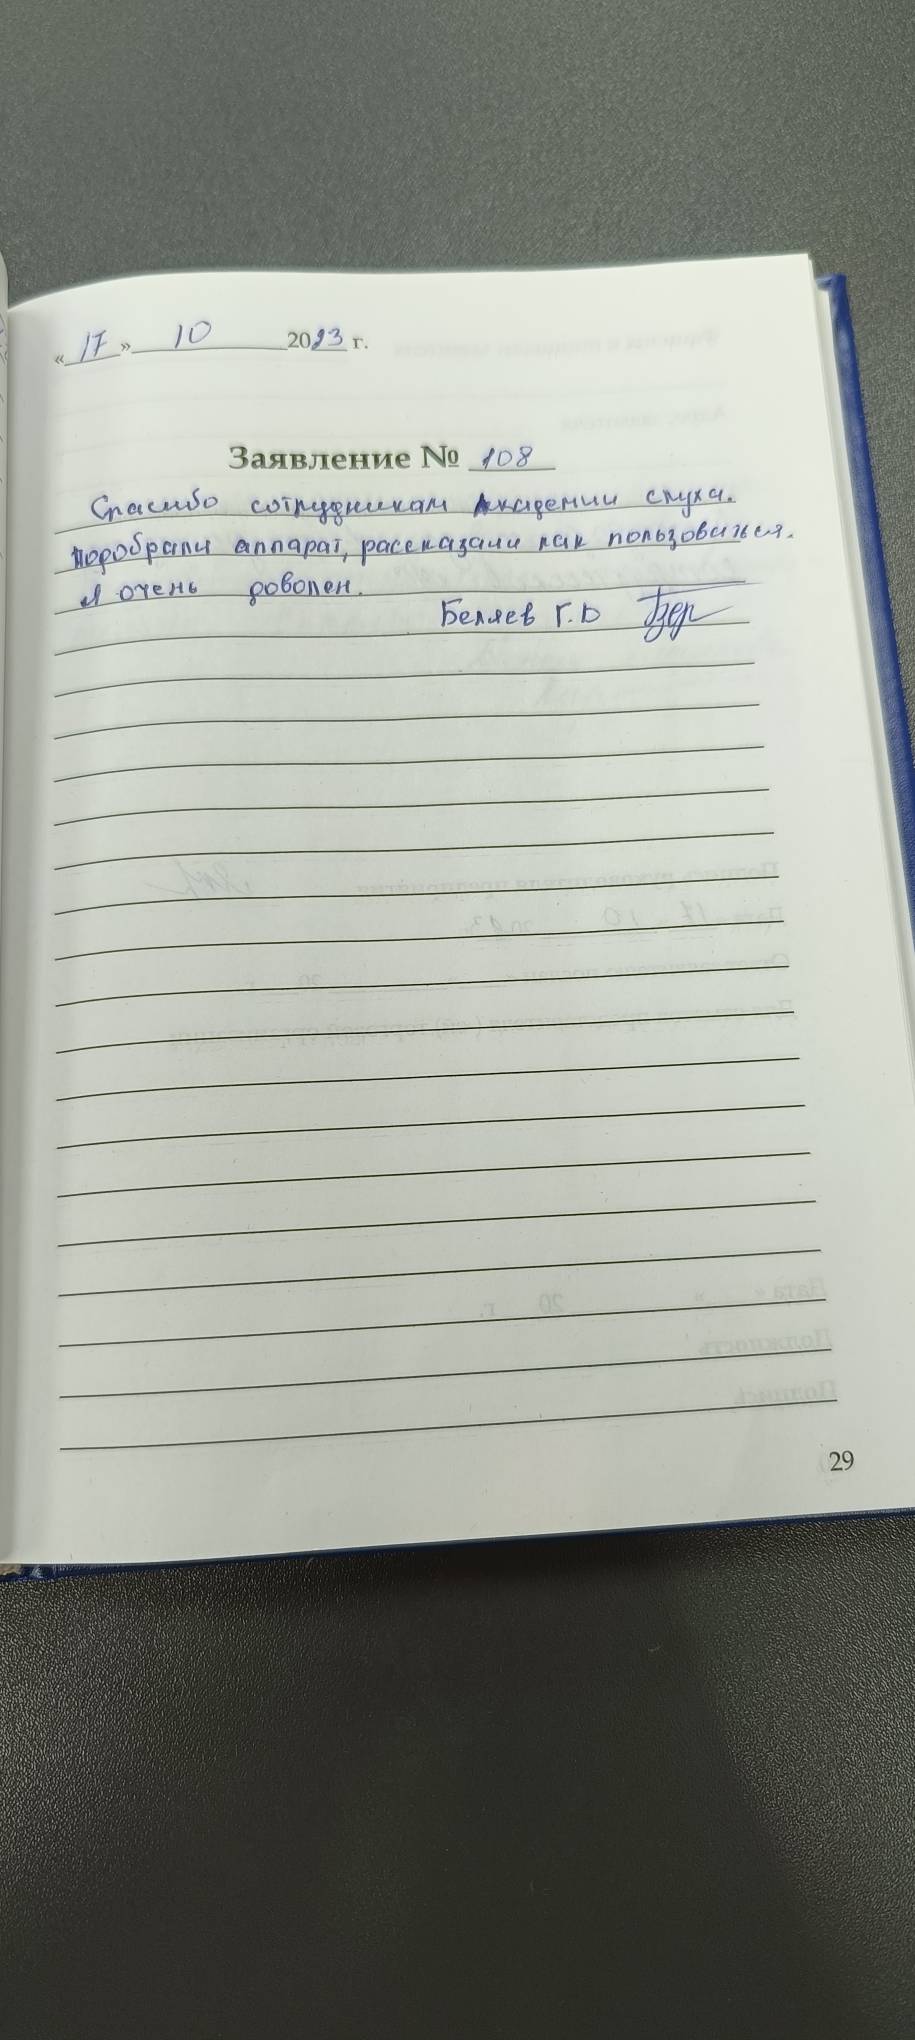 « 17 » 10 2023 г.
Заявление № 108
Спасибо сотрудникам Академии слуха.
Подобрали аппарат, рассказали как пользоваться.
Я очень доволен.
Беляев Г.D
29